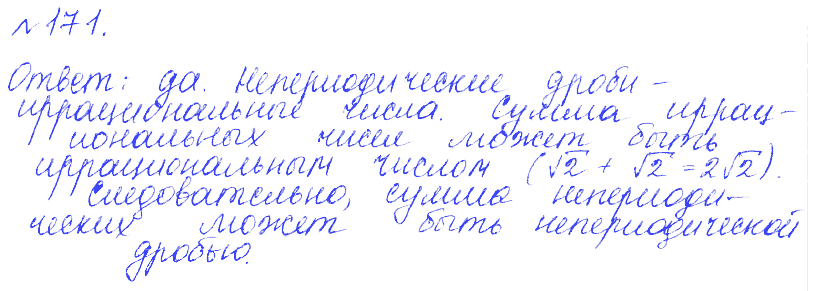 №171.
Ответ: да. Непериодические дроби –
иррациональные числа. Сумма иррац-
иональных чисел может быть
иррациональным числом (√2 + √2 = 2√2).
Следовательно, сумма непериоди-
ческих может быть непериодической
дробью.